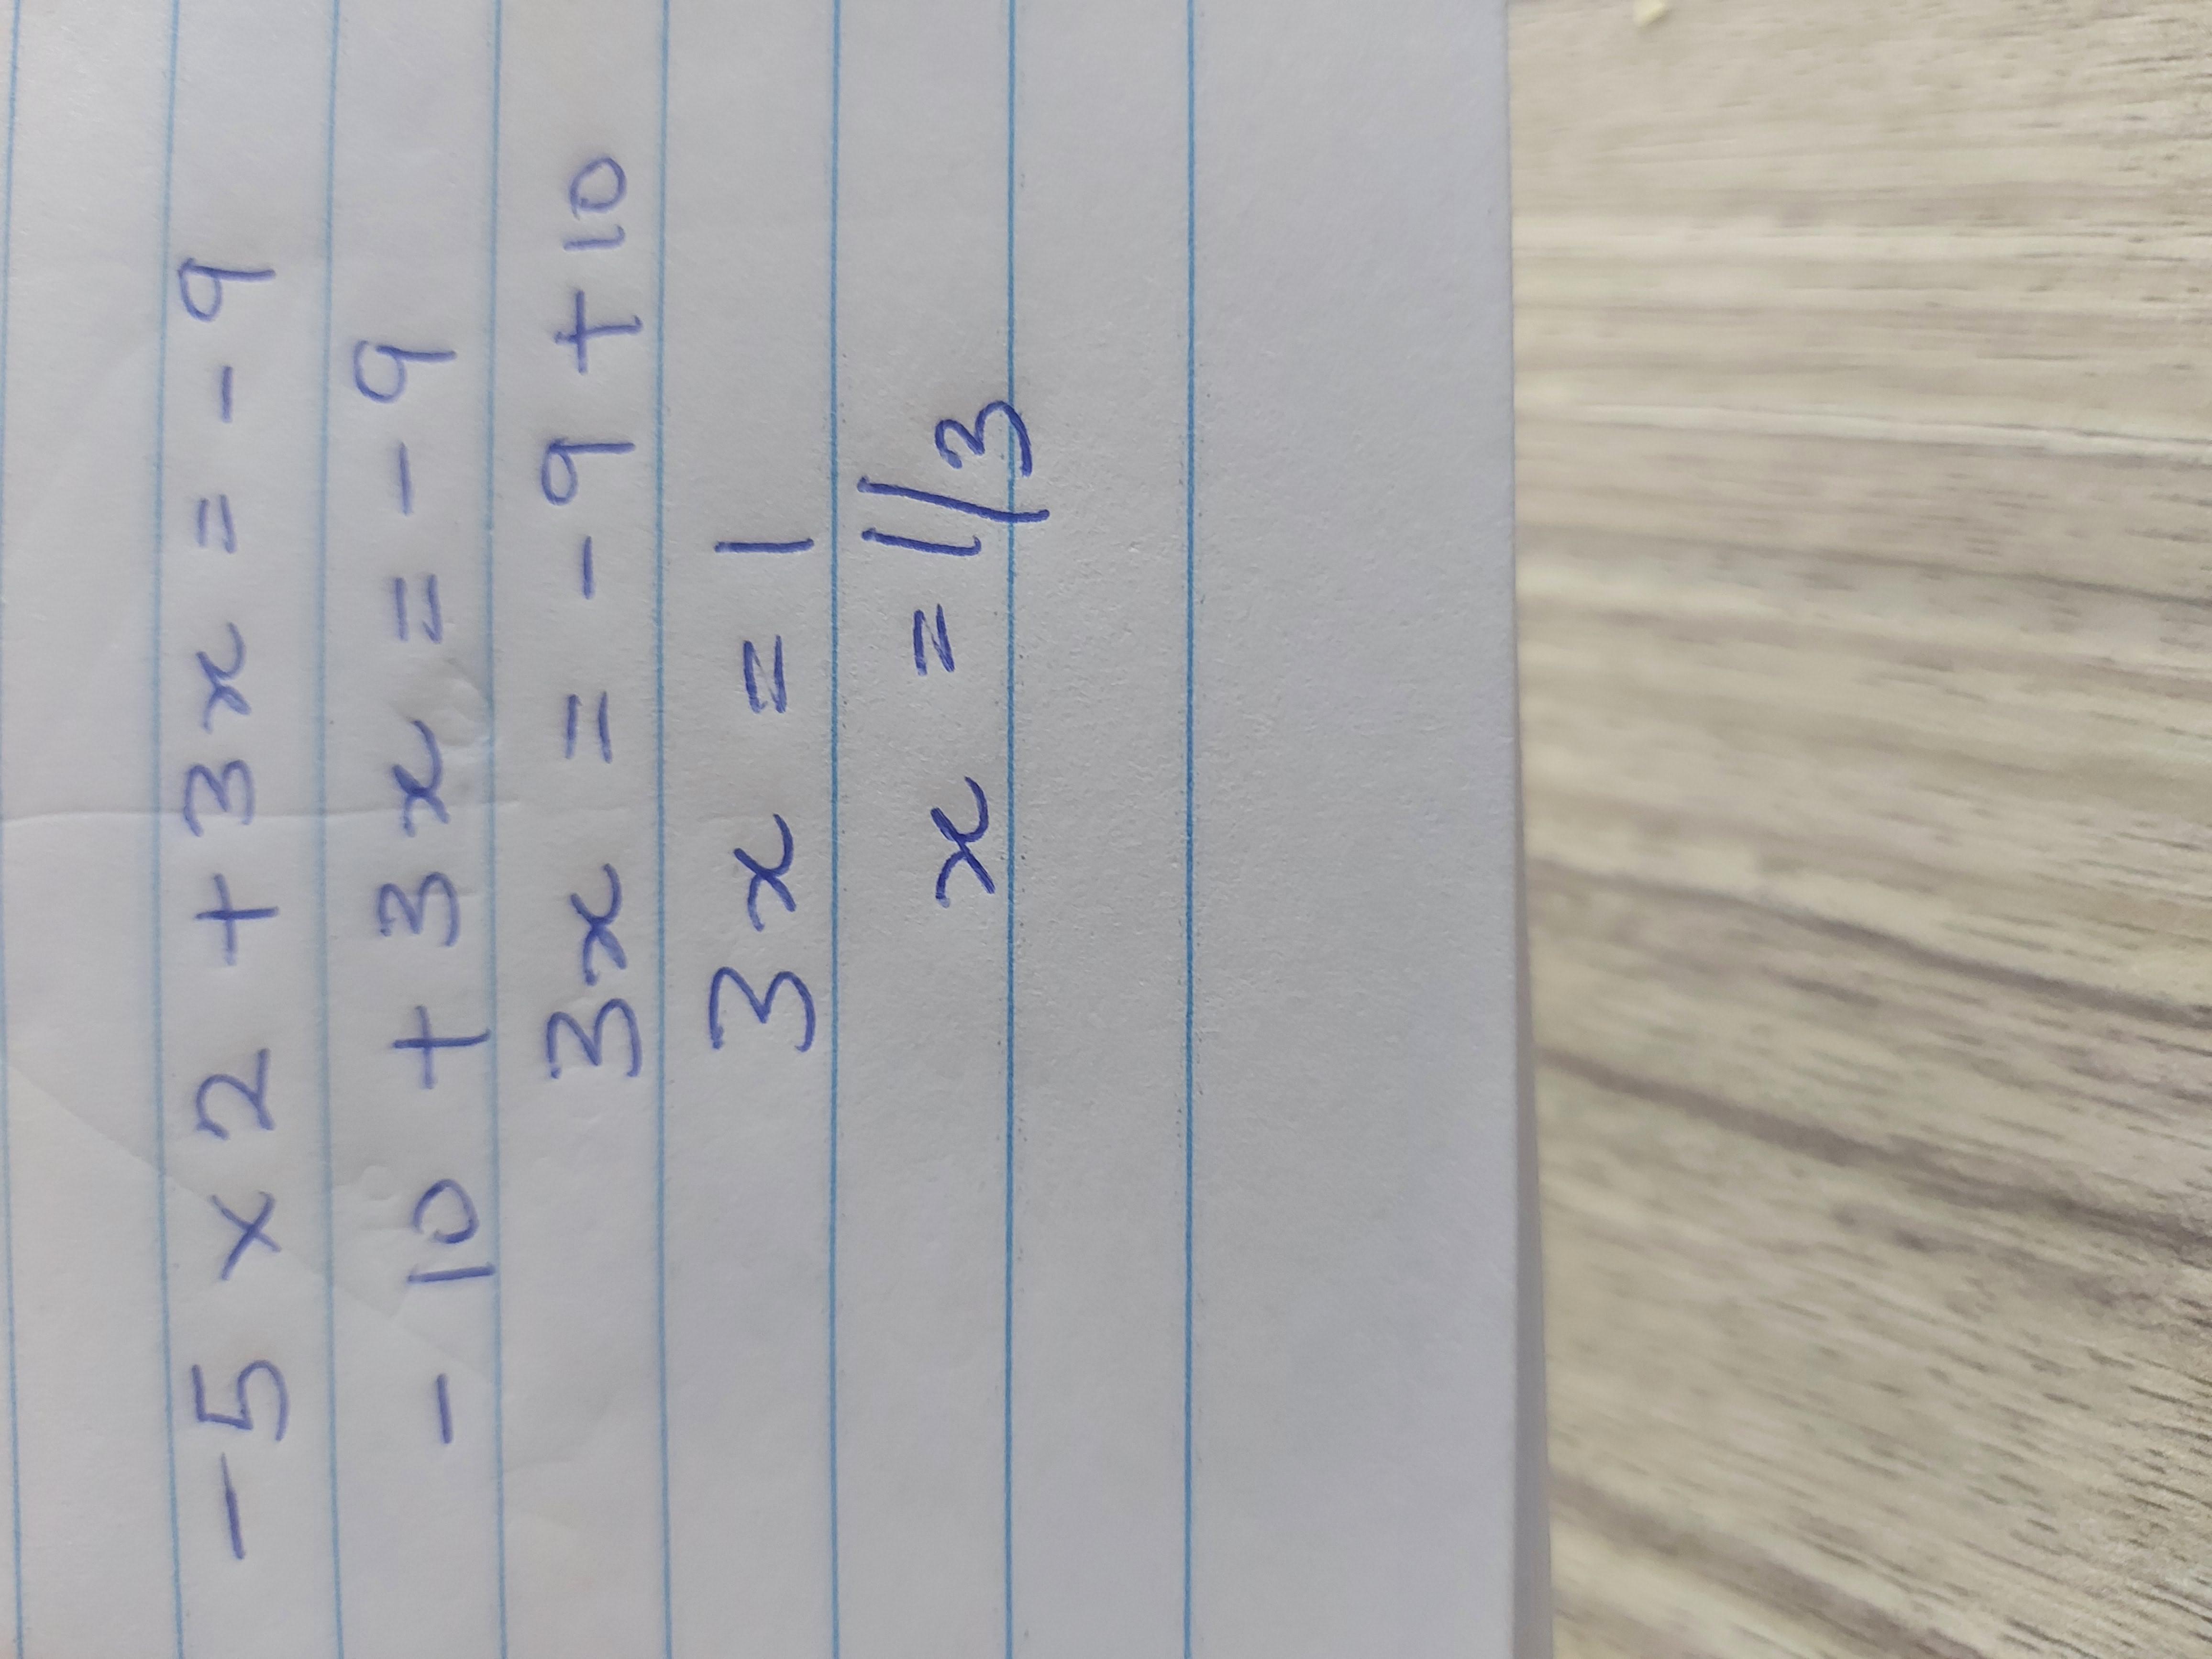 -5 × 2 + 3x = -9
-10 + 3x = -9
3x = -9 + 10
3x = 1
x = 1/3